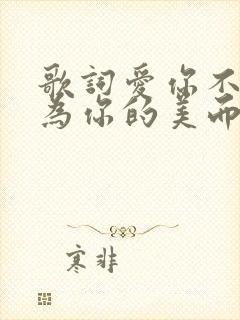 歌詞愛你不
為你的美而
寒非